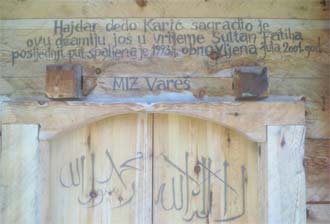 Hajdar dedo Karić sagradio je
ovu džamiju još u vrijeme Sultan Fatiha
posljednji put spaljena je 1993g. obnovljena Jula 2001.god.
MIZ Vareš
لا اله الا الله
محمد رسول الله